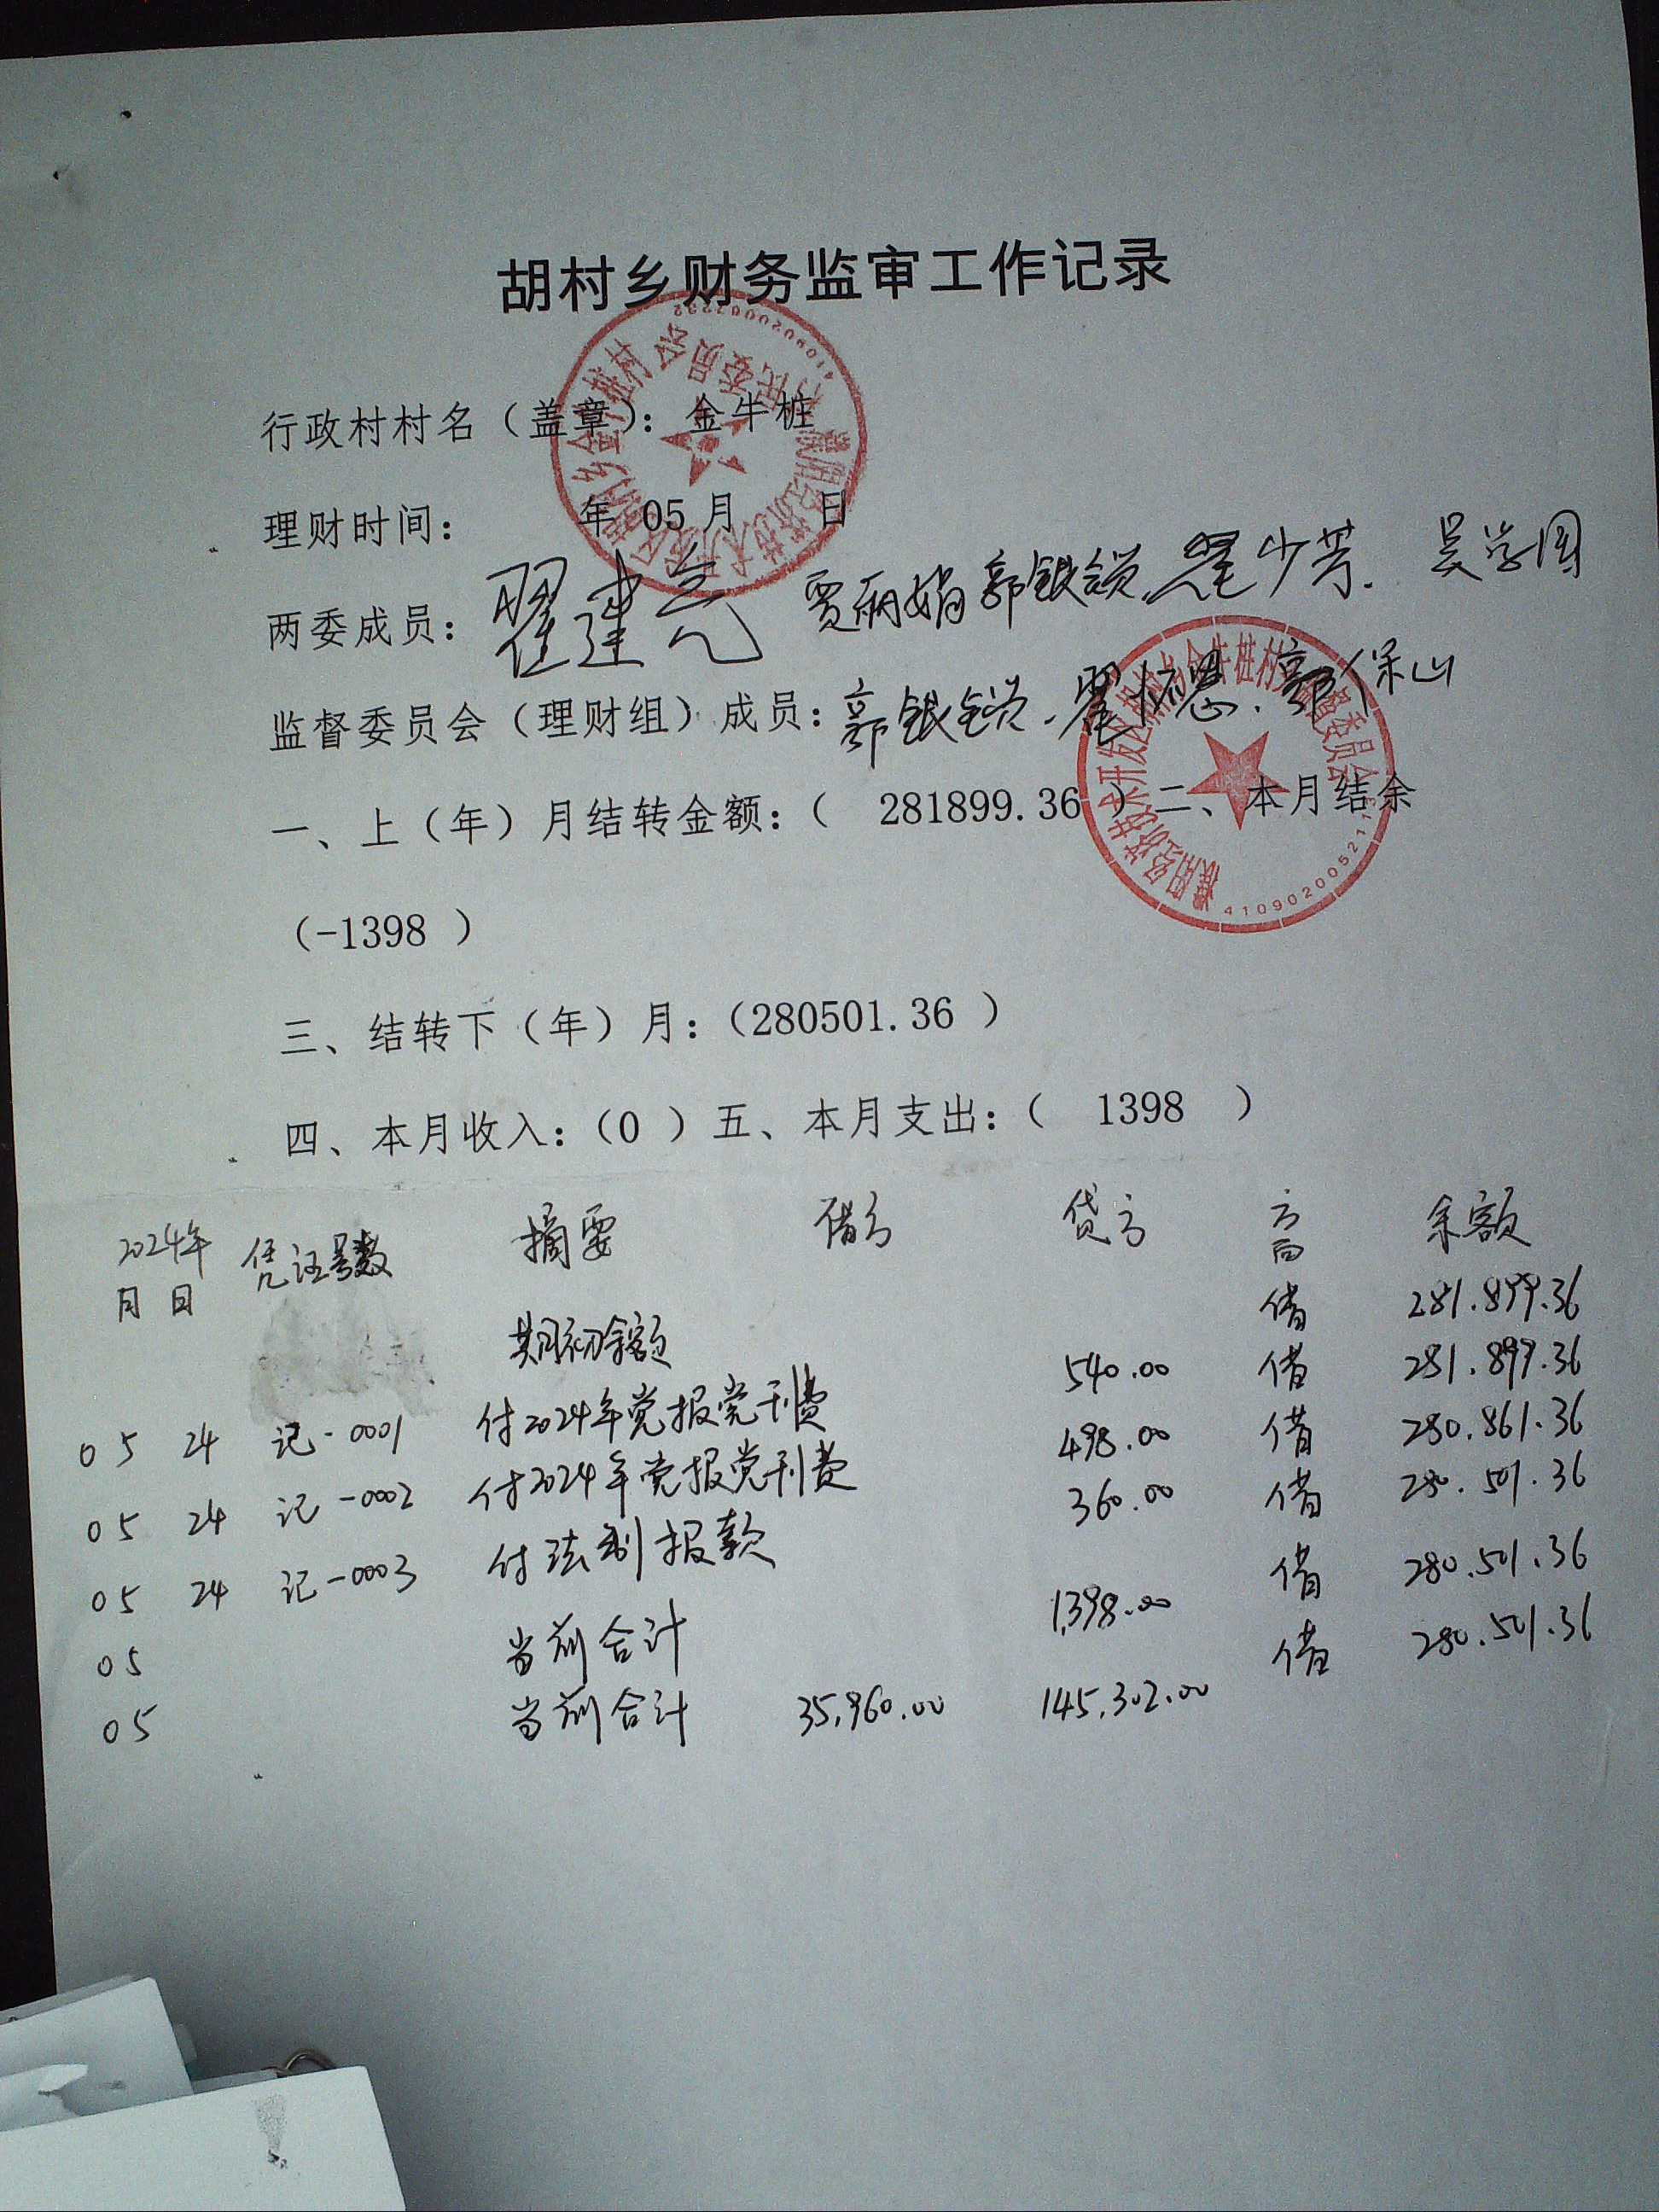 胡村乡财务监审工作记录
行政村村名（盖章）：金牛桩
理财时间： 年 05 月 日
两委成员：翟建 贾丽娟 郭银锁 翟少芳 吴学国
监督委员会（理财组）成员：郭银锁 翟怀恩 郭保山
一、上（年）月结转金额：（ 281899.36 ）二、本月结余
（-1398 ）
三、结转下（年）月：（280501.36 ）
四、本月收入：（0 ）五、本月支出：（ 1398 ）
2024年 凭证号数 摘要 借方 贷方 方向 余额
月 日
期初余额 借 281,899.36
05 24 记-0001 付2024年党报党刊费 540.00 借 281,899.36
05 24 记-0002 付2024年党报党刊费 498.00 借 280,861.36
05 24 记-0003 付法制报款 360.00 借 280,501.36
05 当前合计 1,398.00 借 280,501.36
05 当前合计 35,960.00 145,302.00 借 280,501.36
濮阳经济技术开发区胡村乡金牛桩村监督委员会
41090200521